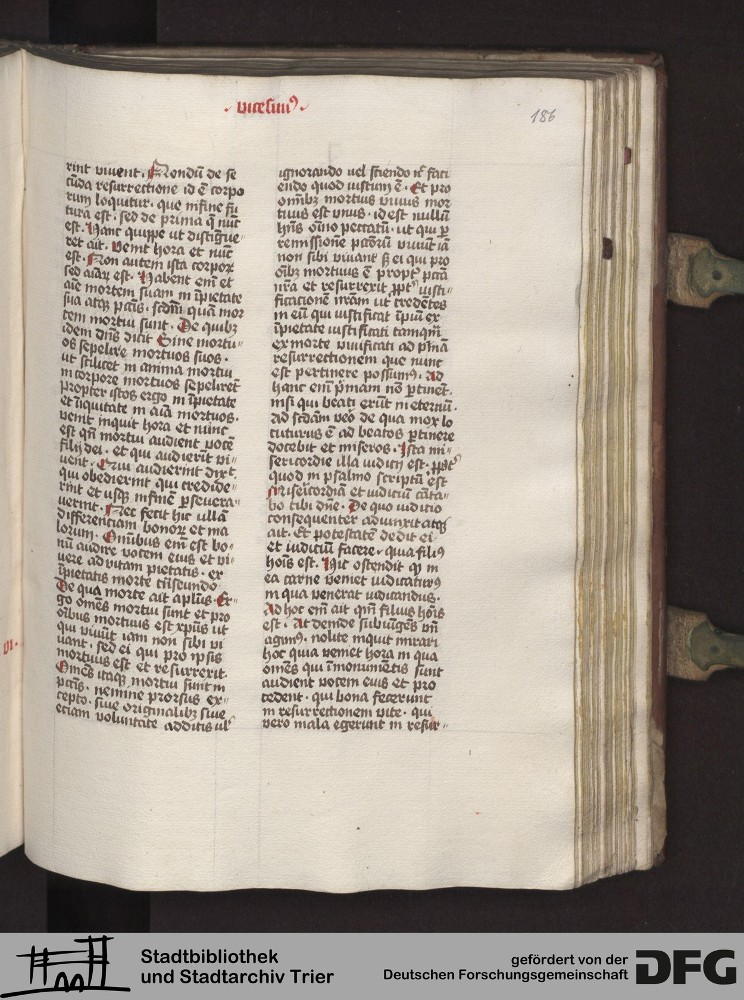 · vicesimꝰ ·
186
rint vivent. Nondū de se
cūda resurrectione id ē corpo
rum loquitur. que in fine fu
tura est. sed de prima q̄ nūc
est. Hanc quippe ut distīgue
ret ait. Venit hora et nūc
est. Non autem ista corporꝝ
sed aīarꝝ est. Habent em̄ et
aīe mortem suam in īpietate
sua atqꝫ pctīs. scdm̄ quā mor
tem mortui sunt. De quibꝫ
idem dn̄s dicit Sine mortu
os sepelire mortuos suos.
ut scilicet in anima mortui
in corpore mortuos sepelirēt
propter istos ergo in īpietate
et īiquitate in aīa mortuos.
venit inquit hora et nunc
est qn̄ mortui audient vocē
filij dei. et qui audierīt vi
vent. Qui audierint dixt
qui obedierint qui credide
rint et usqꝫ in finē ꝑsevera
verint. Nec fecit hic ullā
differenciam bonorꝝ et ma
lorum. Omnibus em̄ est bo
nū audire vocem eius et vi
vere ad vitam pietatis. ex
īpietatis morte trāseundo
De qua morte ait aplūs. Er
go om̄es mortui sunt et pro
oībus mortuus est xp̄us ut
qui vivūt iam non sibi vi
vant. sed ei qui pro ipsis
mortuus est et resurrexit.
Om̄es itaqꝫ mortui sunt in
pctīs. nemine prorsus ex
cepto. sive originalibꝫ sive
etiam voluntate additis ul̄
VI.
ignorando vel sciendo nc̄ faci
endo quod iustum ē. Et pro
om̄ibꝫ mortuis vivus mor
tuus est vnus. id est nullū
hn̄s oīno peccatū. ut qui ꝑ
remissionē pctōrū vivūt iā
non sibi vivant sꝫ ei qui pro
oībꝫ mortuus ē propt̄ pctā
nr̄a et resurrexit ꝓpt̄ iusti
ficationē nr̄am ut credētes
in eū qui iustificat īpiū ex
īpietate iustificati tamqm̄
ex morte vivificati ad pͥmā
resurrectionem que nunc
est pertinere possimꝰ. Ad
hanc em̄ pͥmam nō ꝑtinēt.
nisi qui beati erūt in eternū.
Ad scdam vero de qua mox lo
cuturus ē ad beatos ꝑtinere
docebit et miseros. Ista mi
sericordie illa iudicij est. ꝓpt̄
quod in psalmo scriptū est
Misericordiā et iudiciū cāta
bo tibi dn̄e. De quo iudicio
consequenter adiunxit atqꝫ
ait. Et potestatē dedit ei
et iudiciū facere. quia filiꝰ
hoīs est. Hic ostendit qꝫ in
ea carne veniet iudicaturꝰ
in qua venerat iudicandus.
Ad hoc em̄ ait qm̄ filius hoīs
est. Ac deinde subiūgēs vn̄
agimꝰ. nolite inquit mirari
hoc quia veniet hora in qua
om̄es qui ī monumētis sunt
audient vocem eius et pro
cedent. qui bona fecerunt
in resurrectionem vite. qui
vero mala egerunt in resur
Stadtbibliothek
und Stadtarchiv Trier
gefördert von der
Deutschen Forschungsgemeinschaft
DFG